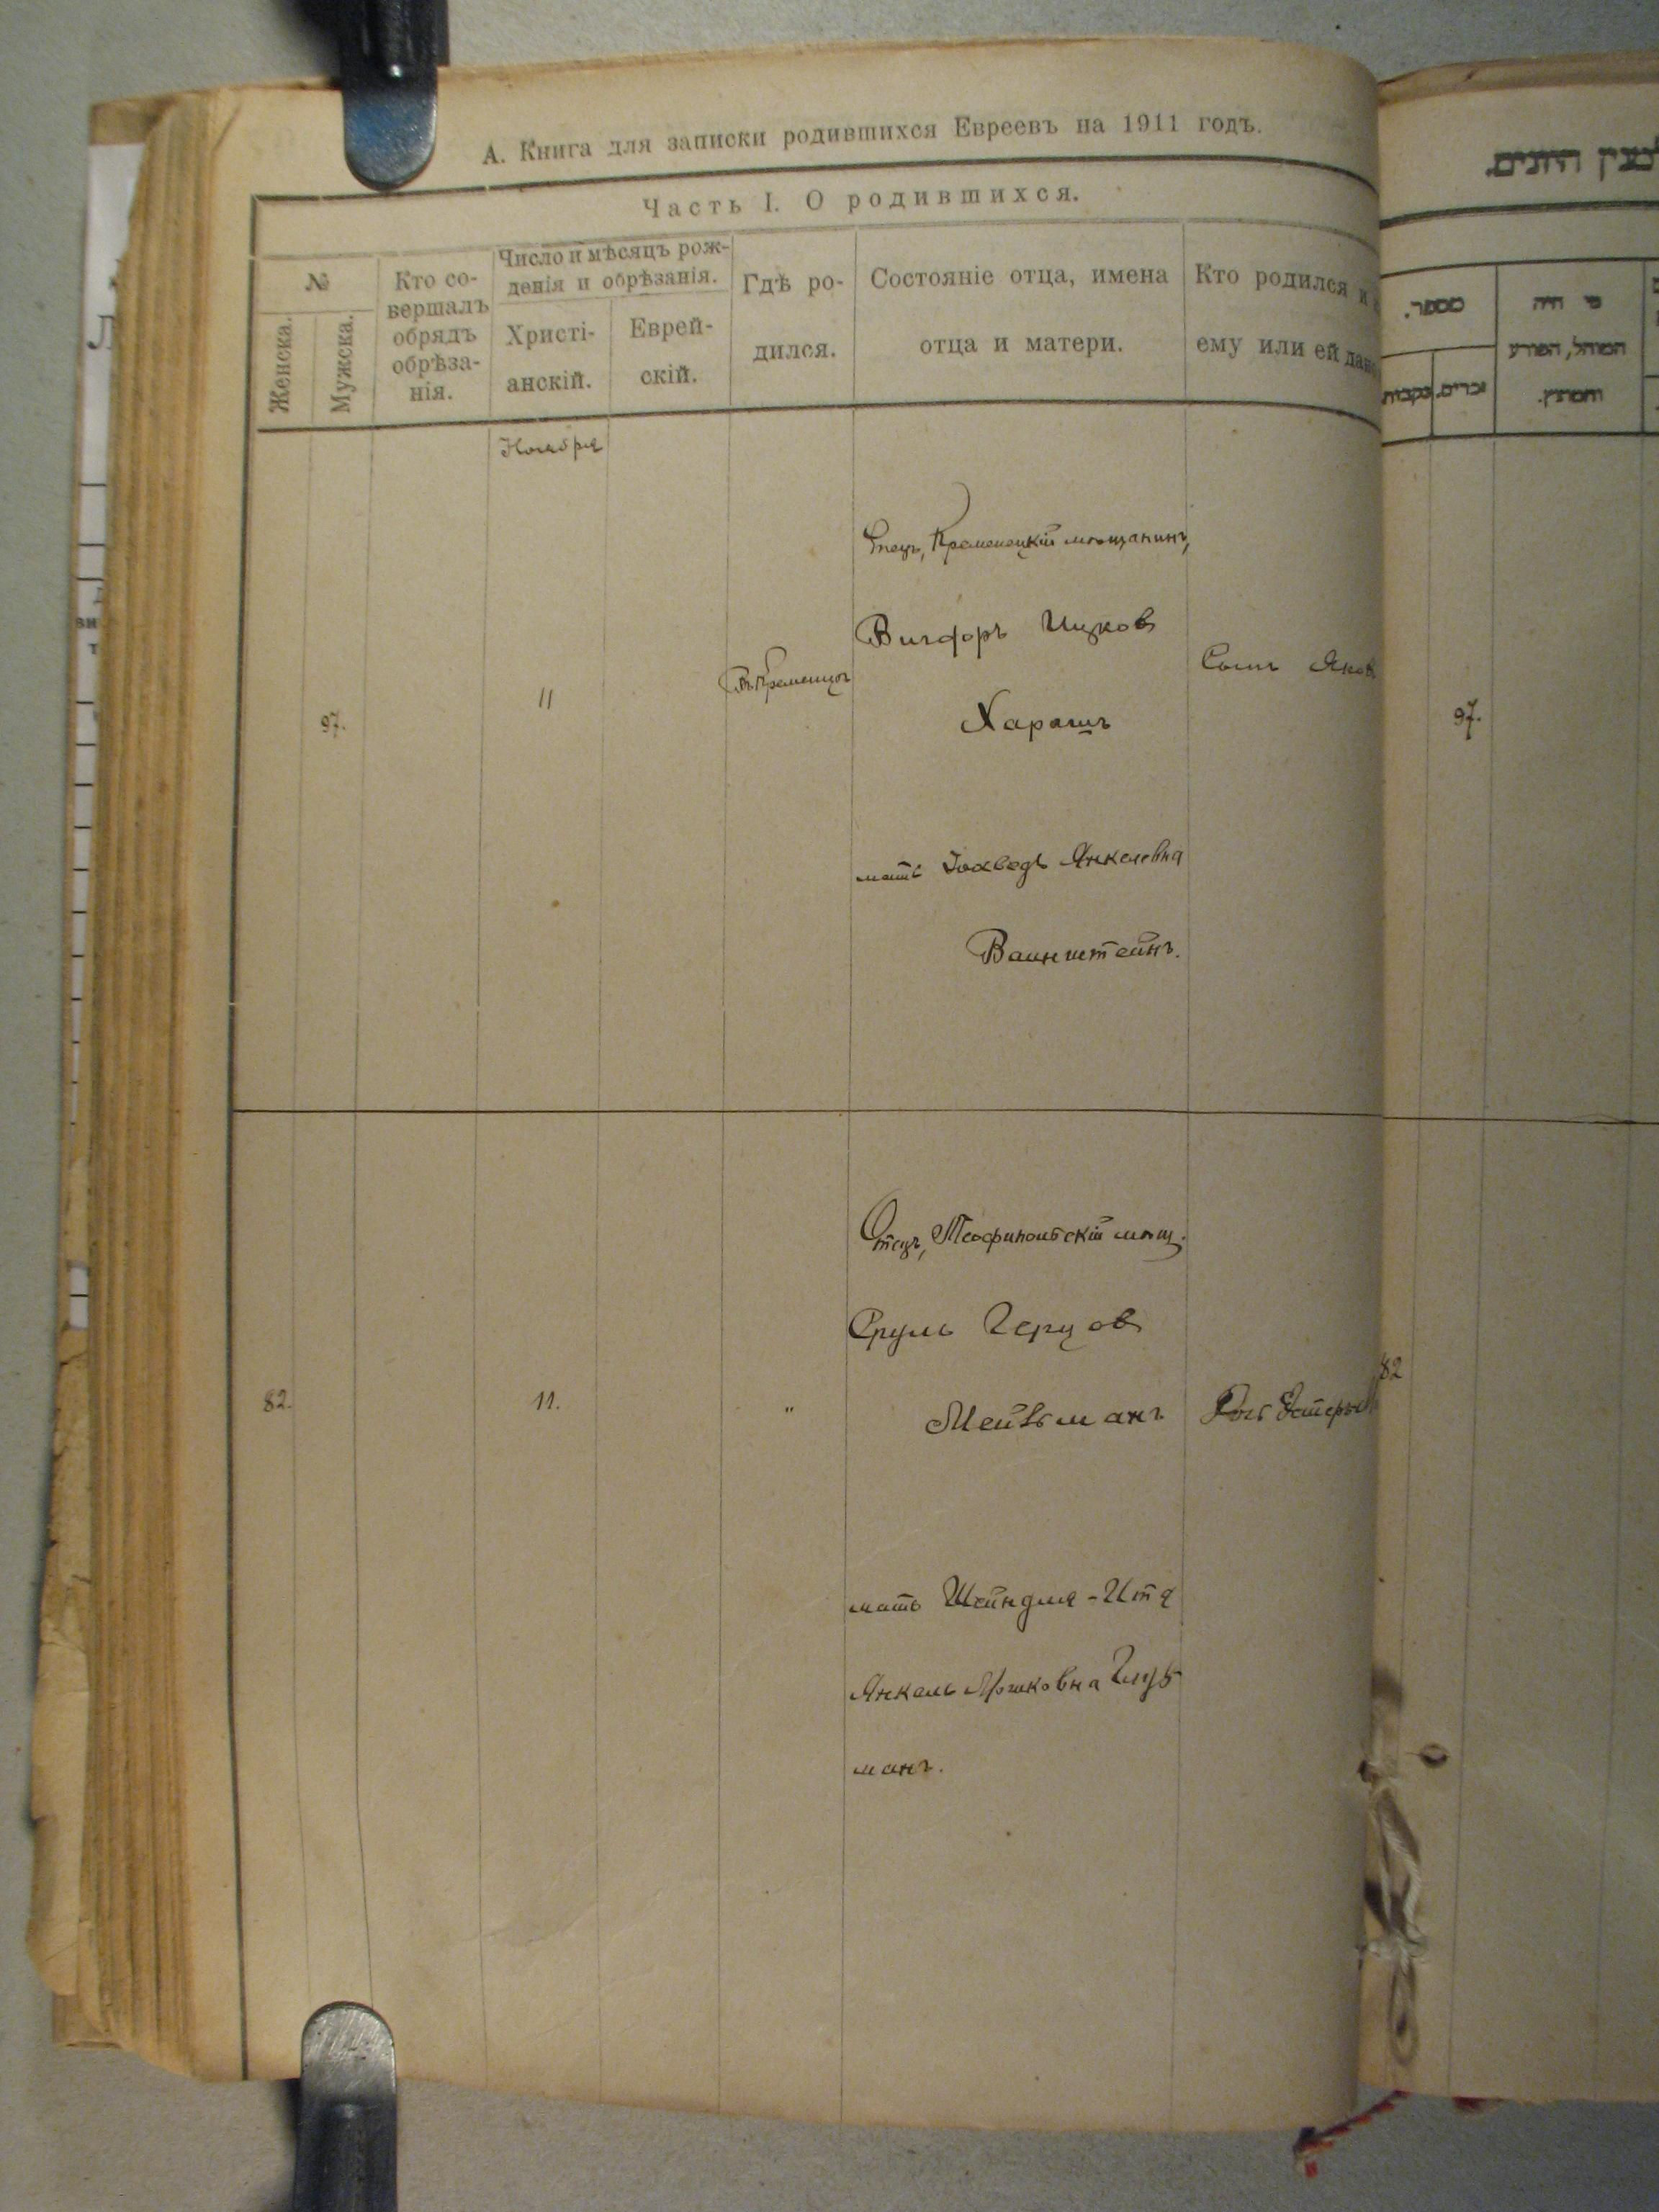 А. Книга для записки родившихся Евреевъ на 1911 годъ.
Часть I. О родившихся.
№
Женска.
Мужска.
Кто со-
вершалъ
обрядъ
обрѣза-
нія.
Число и мѣсяцъ рож-
денія и обрѣзанія.
Христі-
анскій.
Еврей-
скій.
Гдѣ ро-
дился.
Состояніе отца, имена
отца и матери.
Кто родился и
ему или ей дано
Ноября
97.
11
Въ Кременцѣ
Отецъ, Кременецкій мѣщанинъ,
Вигфоръ Ицковъ
Харашъ
мать Іохведъ Янкелевна
Ваинштейнъ.
Сынъ Яков
82.
11.
"
Отецъ, Теофипольскій мѣщ.
Сруль Герцовъ
Мейзьманъ
мать Шейндля-Ита
Янкель Мошковна
манъ.
Дочь
מספר.
נקבות.
זכרים.
מי היה
המוהל, הפורע
והמוצץ.
97.
82